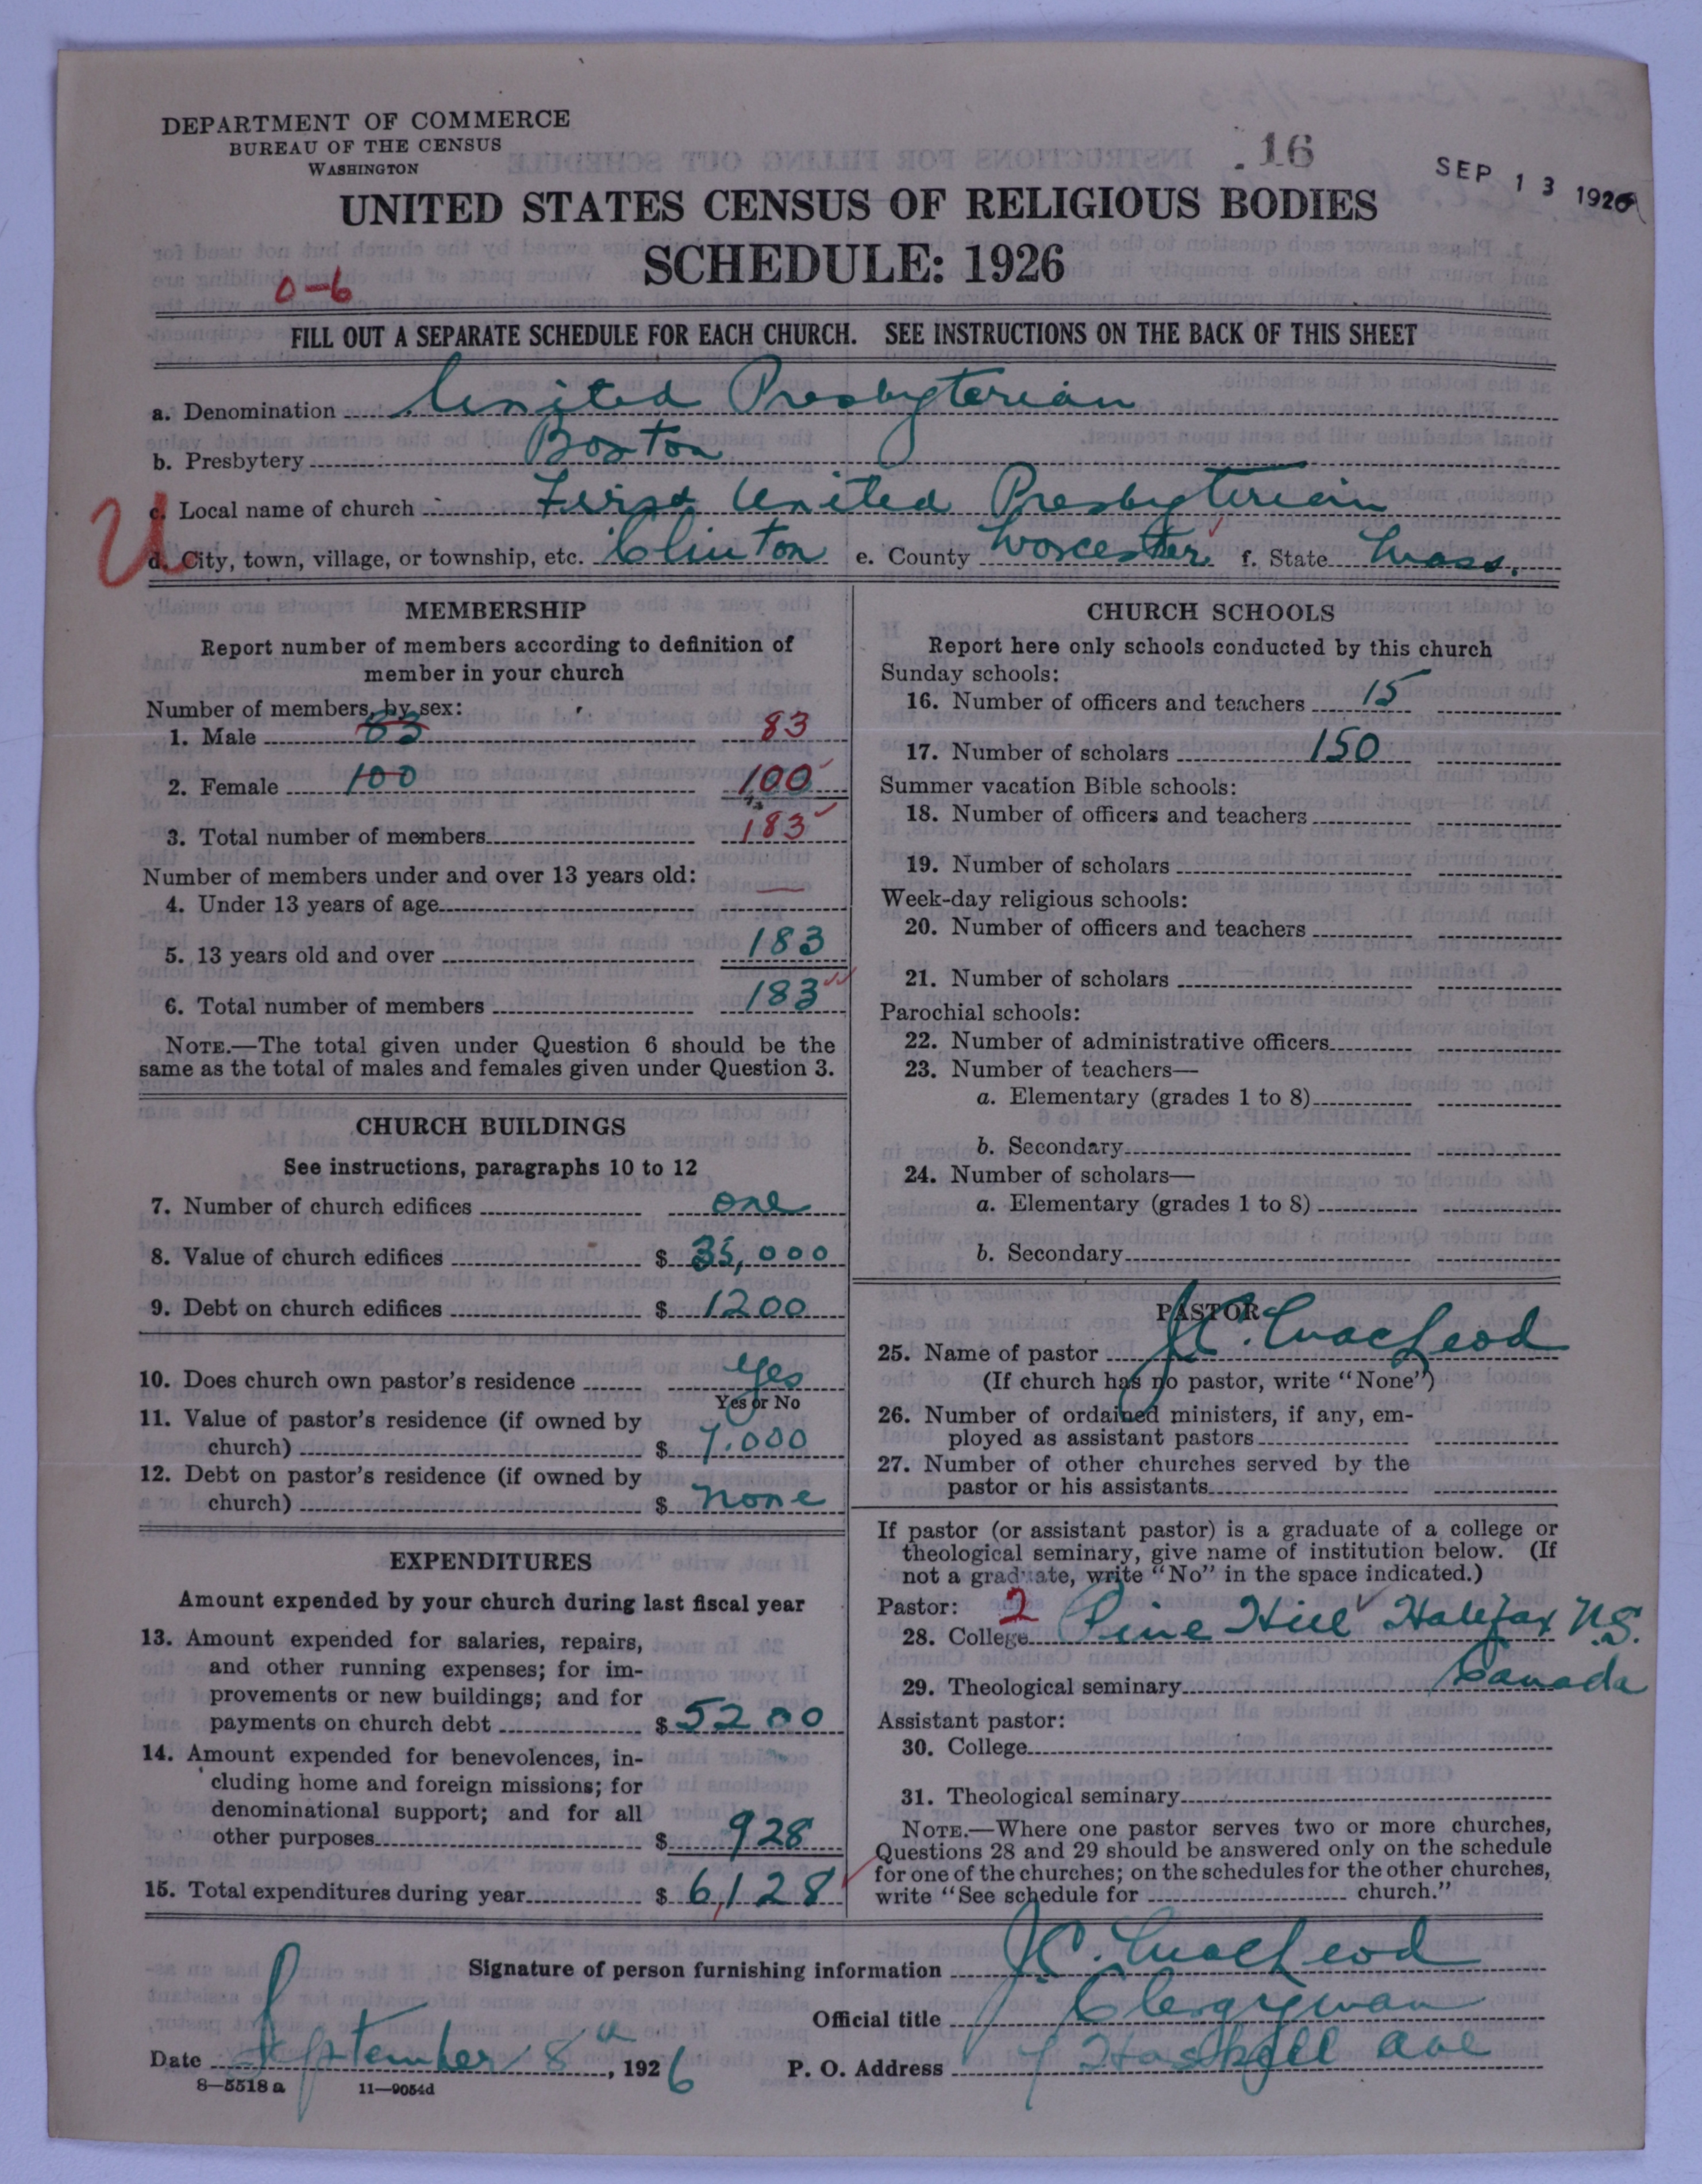 DEPARTMENT OF COMMERCE
BUREAU OF THE CENSUS
WASHINGTON
.16
SEP 13 1926
UNITED STATES CENSUS OF RELIGIOUS BODIES
SCHEDULE: 1926
0-6
FILL OUT A SEPARATE SCHEDULE FOR EACH CHURCH. SEE INSTRUCTIONS ON THE BACK OF THIS SHEET
a. Denomination United Presbyterian
b. Presbytery Boston
U
c. Local name of church First United Presbyterian
d. City, town, village, or township, etc. Clinton e. County Worcester f. State Mass.
MEMBERSHIP
Report number of members according to definition of
member in your church
Number of members, by sex:
1. Male 83 83
2. Female 100 100
3. Total number of members 183
Number of members under and over 13 years old:
4. Under 13 years of age —
5. 13 years old and over 183
6. Total number of members 183
NOTE.—The total given under Question 6 should be the
same as the total of males and females given under Question 3.
CHURCH BUILDINGS
See instructions, paragraphs 10 to 12
7. Number of church edifices one
8. Value of church edifices $ 35,000
9. Debt on church edifices $ 1200
10. Does church own pastor's residence yes
Yes or No
11. Value of pastor's residence (if owned by
church) $ 7.000
12. Debt on pastor's residence (if owned by
church) $ none
EXPENDITURES
Amount expended by your church during last fiscal year
13. Amount expended for salaries, repairs,
and other running expenses; for im-
provements or new buildings; and for
payments on church debt $ 5200
14. Amount expended for benevolences, in-
cluding home and foreign missions; for
denominational support; and for all
other purposes $ 928
15. Total expenditures during year $ 6,128
CHURCH SCHOOLS
Report here only schools conducted by this church
Sunday schools:
16. Number of officers and teachers 15
17. Number of scholars 150
Summer vacation Bible schools:
18. Number of officers and teachers
19. Number of scholars
Week-day religious schools:
20. Number of officers and teachers
21. Number of scholars
Parochial schools:
22. Number of administrative officers
23. Number of teachers—
a. Elementary (grades 1 to 8)
b. Secondary
24. Number of scholars—
a. Elementary (grades 1 to 8)
b. Secondary
PASTOR
25. Name of pastor J.C. MacLeod
(If church has no pastor, write "None")
26. Number of ordained ministers, if any, em-
ployed as assistant pastors
27. Number of other churches served by the
pastor or his assistants
If pastor (or assistant pastor) is a graduate of a college or
theological seminary, give name of institution below. (If
not a graduate, write "No" in the space indicated.)
Pastor: 2
28. College Pine Hill Halifax N.S.
29. Theological seminary Canada
Assistant pastor:
30. College
31. Theological seminary
NOTE.—Where one pastor serves two or more churches,
Questions 28 and 29 should be answered only on the schedule
for one of the churches; on the schedules for the other churches,
write "See schedule for church."
Signature of person furnishing information J.C. MacLeod
Official title Clergyman
Date September 8th, 1926 P. O. Address 7 Haskell Ave
8—5518 a 11—9054d